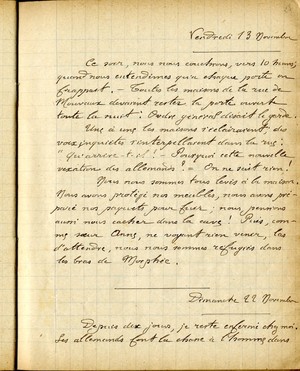 Vendredi 13 Novembre
Ce soir, nous nous couchions, vers 10 heures,
quand nous entendîmes qu'à chaque porte on
frappait. - Toutes les maisons de la rue de
Mouvaux devaient rester la porte ouverte
toute la nuit. Ordre général disait le garde.
Une à une les maisons s'éclairaient, des
voix inquiètes s'interpellaient dans la rue:
"Qu'arrive-t-il? - Pourquoi cette nouvelle
vexation des allemands? - On ne sait rien!
Nous nous sommes tous levés à la maison.
Nous avons protégé nos meubles, nous avons pré-
paré nos paquets pour fuir: nous pensions
aussi nous cacher dans la cave! Puis, com-
me sœur Anne, ne voyant rien venir, las
d'attendre, nous nous sommes réfugiés dans
les bras de Morphée.
Dimanche 22 Novembre
Depuis dix jours, je reste enfermé chez moi.
Les allemands font la chasse à l'homme dans